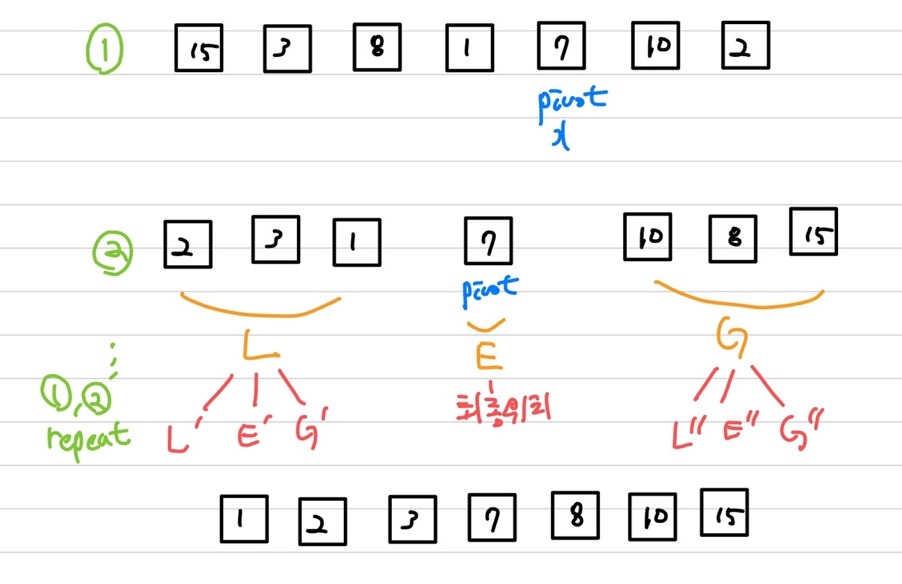 ① 15 3 8 1 7 10 2
pivot
x
② 2 3 1 7 10 8 15
pivot
L E G
⋮
①,② repeat
L' E' G' 최종위치 L'' E'' G''
1 2 3 7 8 10 15